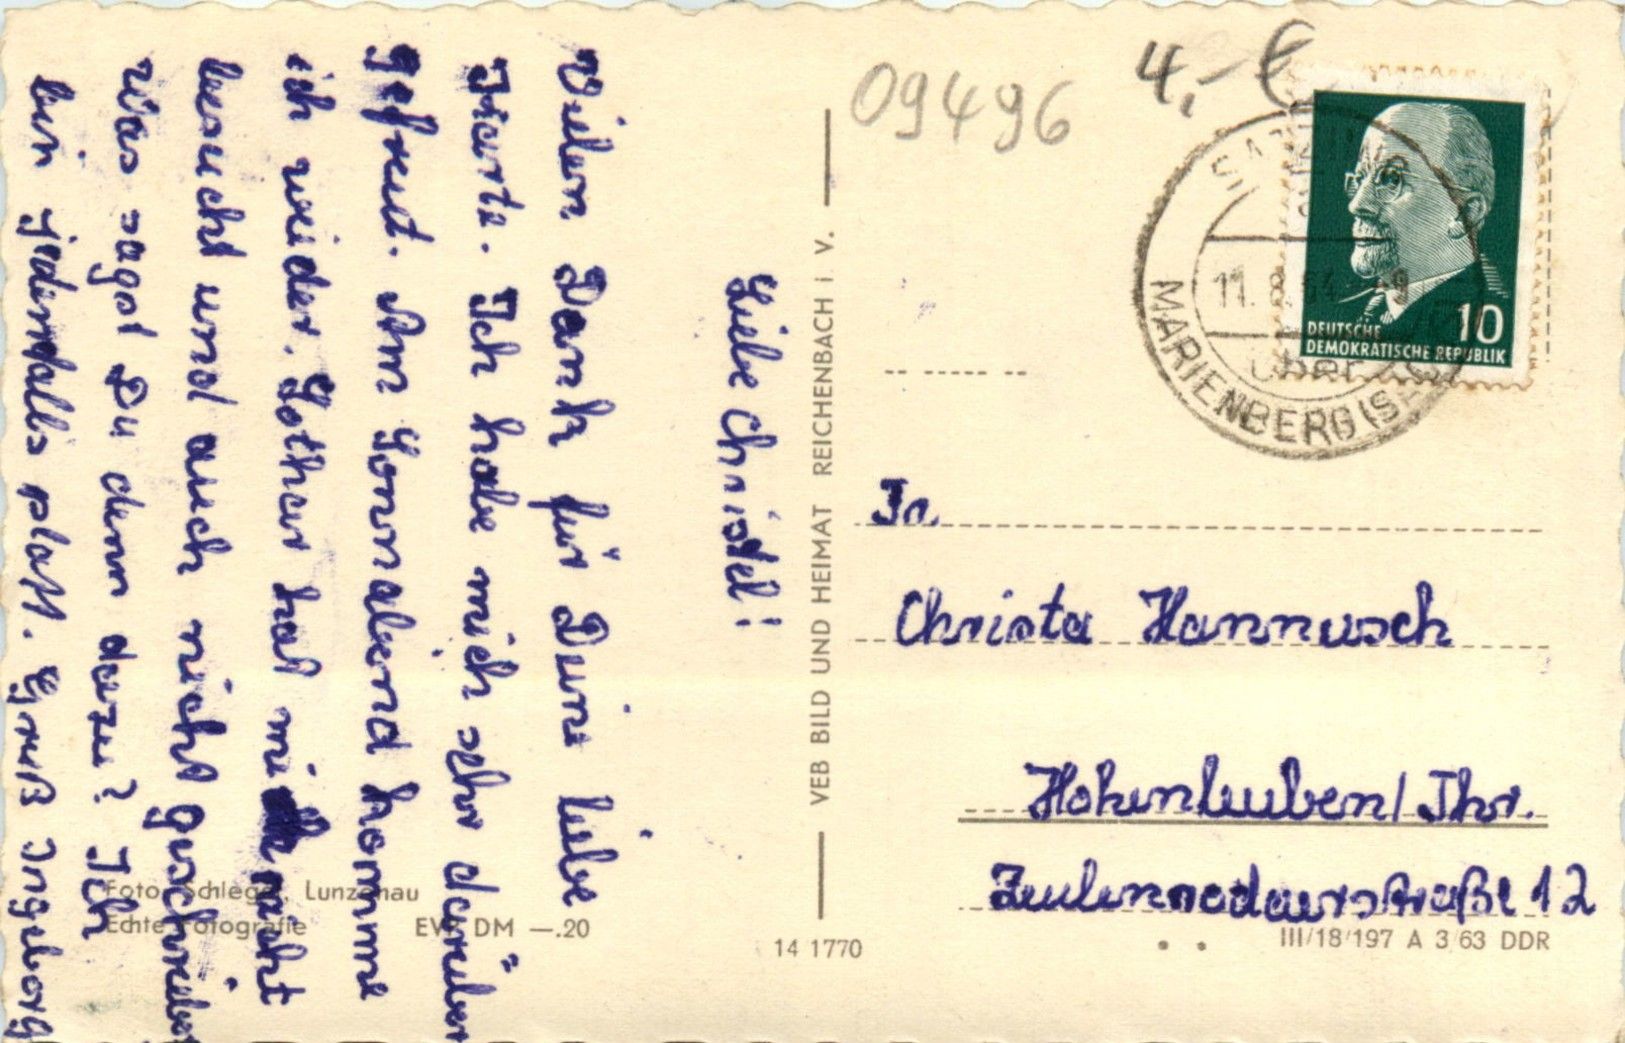 Liebe Christel!
Vielen Dank für Deine liebe
Karte. Ich habe mich sehr darüber
gefreut. Am Sonnabend komme
ich wieder. Lothar hat mich nicht
besucht und auch nicht geschrieben
Was sagst Du denn dazu? Ich
bin jedenfalls platt. Gruß Ingeborg
VEB BILD UND HEIMAT REICHENBACH I. V.
09496
4,- €
11. 8. 64
über
MARIENBERG (SA
DEUTSCHE
DEMOKRATISCHE REPUBLIK
10
Christa Hannusch
Hohenleuben/Thr.
Zeulenrodaerstraße 12
Foto Schlegel, Lunzenau
Echte Fotografie EVP DM —.20
14 1770
III/18/197 A 3/63 DDR